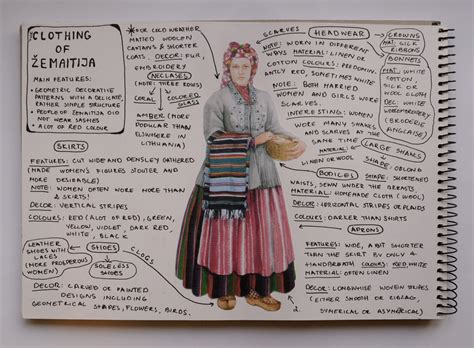 CLOTHING
OF
ŽEMAITIJA
MAIN FEATURES:
• GEOMETRIC DECORATIVE
PATTERNS, WITH A DELICATE,
RATHER SIMPLE STRUCTURE
• PEOPLE OF ŽEMAITIJA DID
NOT WEAR SASHES
• A LOT OF RED COLOUR
*FOR COLD WEATHER
MATTED WOOLEN
CAFTANS & SHORTER
COATS, DECOR: FUR,
EMBROIDERY
NECLASES
(MORE THREE ROWS)
CORAL
COLORED
GLASS
AMBER (MORE
POPULAR THAN
ELSWHERE IN
LITHUANIA)
SKIRTS
FEATURES: CUT WIDE AND DENSLEY GATHERED
(MADE WOMEN'S FIGURES STOUTER AND
MORE DESIRABLE)
NOTE: WOMEN OFTEN WORE MORE THAN
& SKIRTS!
DECOR: VERTICAL STRIPES
COLOURS: RED (ALOT OF RED), GREEN,
YELLOW, VIOLET, DARK RED,
WHITE, BLACK
LEATHER
SHOES WITH
LACES
(MORE PROSPEROUS
WOMEN)
SHOES
SOLELESS
SHOES
CLOGS
DECOR: CARVED OR PAINTED
DESIGNS INCLUDING
GEOMETRICAL SHAPES, FLOWERS, BIRDS.
HEADWEAR
SCARVES
NOTE: WORN IN DIFFERENT
WAYS MATERIAL: LINEN OR
COTTON COLOURS: PREDOMIN.
ANTLY RED, SOMETIMES WHITE
NOTE: BOTH MARRIED
WOMEN AND GIRLS WORE
SCARVES.
INTERESTING: WOMEN
WORE MANY SHAKS
AND SCARVES AT THE
SAME TIME
MATERIAL:
LINEN OR WOOL
LARGE SHAKS
SHAPE: OBLONG
CROWNS
MAT: SILK
RIBBONS
BONNETS
MAT: WHITE
COTTON,
SILK OR
WOOL CLOTH
DEC: WHITE
WORKEMBROIDERY
(BRODERIE
ANGLAISE)
BODICES
SHAPE: SHORTENED
WAISTS, SEWN UNDER THE BREASTS
MATERIAL: HOMEMADE CLOTH (WOOL)
DECOR: HORIZONTAL STRIPES OR PLAIDS
COLOURS: DARKER THAN SKIRTS
APRONS
FEATURES: WIDE, A BIT SHORTER
THAN THE SKIRT BY ONLY A
HANDBREATH COLOURS: RED, WHITE
MATERIAL: OFTEN LINEN
DECOR: LONGWISE WOVEN STRIPES
(EITHER SMOOTH OR ZIGZAG,
SYMERICAL OR ASYMERICAL)
2.